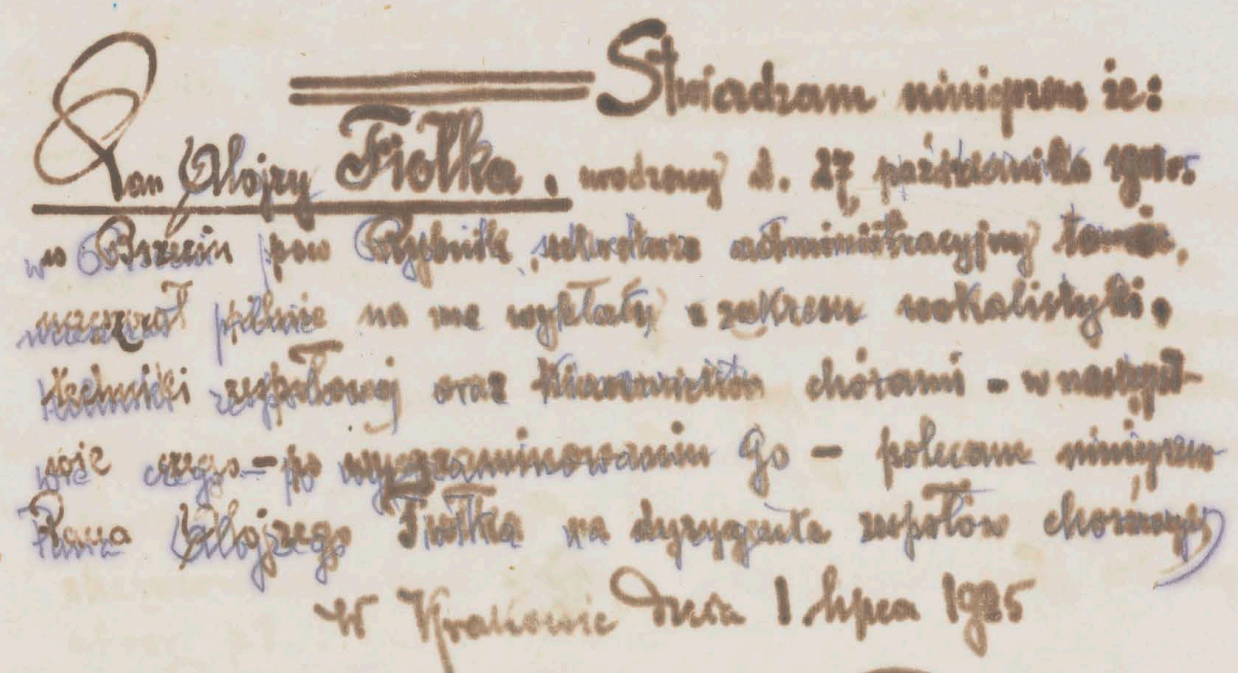 Stwierdzam niniejszem że:
Pan Alojzy Fiołka, urodzony d. 27 października 1901r.
w pow Rybnik, sekretarz administracyjny tamże,
uczęszczał pilnie na me wykłady z zakresu wokalistyki,
techniki zespołowej oraz kierownictwa chórami – w następst-
wie czego – po wyegzaminowaniu Go – polecam niniejszem
Pana Alojzego Fiołka na dyrygenta zespołów chórowych
W Krakowie dnia 1 lipca 1925